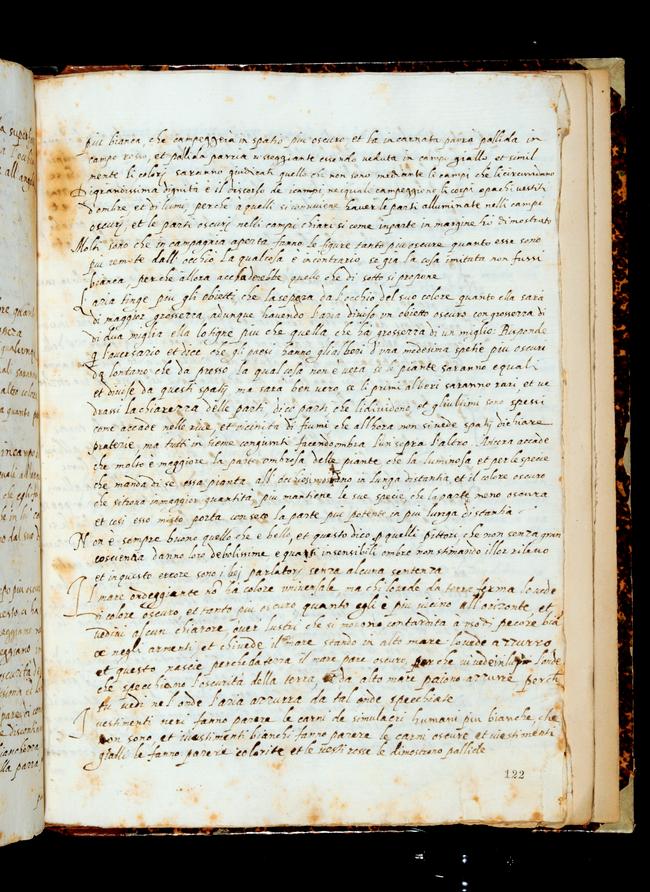 piu bianca, che campeggera in spatio piu oscuro et la incarnata parra pallida in
campo rosso, et pallida parria rosseggiante essendo veduta in campi giallo, et simil
mente li colori saranno giudicati quello che non sono mediante li campi che li circundano
Di grandissima dignità è il discorso de i campi ne i quali campeggiono li corpi opachi vestiti
d'ombre, et di lumi, perche à quelli si conviene haver le parti alluminate nelli campi
oscuri, et le parti oscuri nelli campi chiari si come in parte in margine ho dimostrato
Molti sono che in campagna aperta fanno le figure tanto piu oscure quanto esse sono
piu remote dall'occhio la qual cosa è in contrario se già la cosa imitata non fussi
bianca, perche allora accaderebbe quello che di sotto si propone
L'aria tinge piu gli obietti che la separa da l'occhio del suo colore quanto ella sarà
di maggior grossezza adunque havendo l'aria diviso un obietto oscuro con grossezza di
di dua miglia ella lo tigne piu che quella che ha grossezza di un miglio: Risponde
q l'aversario et dice che gli paesi hanno gli alberi d'una medesima spetie piu oscuri
da lontano che da presso, la qual cosa non è vera se le piante saranno equali
et divise da questi spatij ma sarà ben vero se li primi alberi saranno rari et ve
drassi la chiarezza delle parti, dico parti che li dividono, et gli ultimi sono spessi
come accade nelle rive et vicinità di fiumi che all'hora non si vede spatij di chiare
praterie, ma tutti in sieme congiunti facendo ombra l'un sopra l'altro. Ancora accade
che molto è maggiore la parte ombrosa delle piante che la luminosa et per le specie
che manda di se essa pianta all'occhio si in lunga distantia, et il colore oscuro
che si trova in maggior quantità piu mantiene le sue specie che la parte meno oscura
et cosi esso misto porta con seco la parte piu potente in piu lunga distantia
Non è sempre buono quello che è bello, et questo dico p quelli pittori, che
danno loro debolissime e quasi insensibili ombre non stimando il lor rilievo
et in questo errore sono i bei parlatori senza alcuna sentenza
Il mare ondeggiante nō ha colore universale, ma chi lo vede da terra ferma lo vede
di colore oscuro et tanto piu oscuro quanto egli è piu vicino all'orizonte, et
vedevi alcun chiarore, over lustri che si movano con tardita à modi di pecore bia
ce negli armenti et chi vede il mare stando in alto mare lo vede azzurro
et questo nascie perche da terra il mare pare oscuro, perche vi vede in l'onde
che specchiano l'oscurità della terra, et da alto mare paiono azzurre perch
tu vedi nel onde l'aria azzurra da tal onde specchiate
I vestimenti neri fanno parere le carni de simulacri humani piu bianche, che
non sono, et i vestimenti bianchi fanno parere le carni oscure et i vestimenti
gialli le fanno parere colorite et le vesti rosse le dimostrano pallide
122